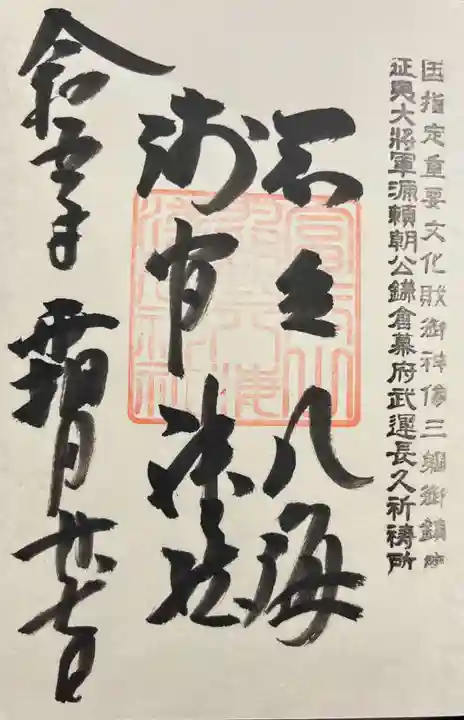 国指定重要文化財御神像三軀御鎮座
征夷大將軍源頼朝公鎌倉幕府武運長久祈禱所
八海
浅間神社
令和五年 霜月廿七日